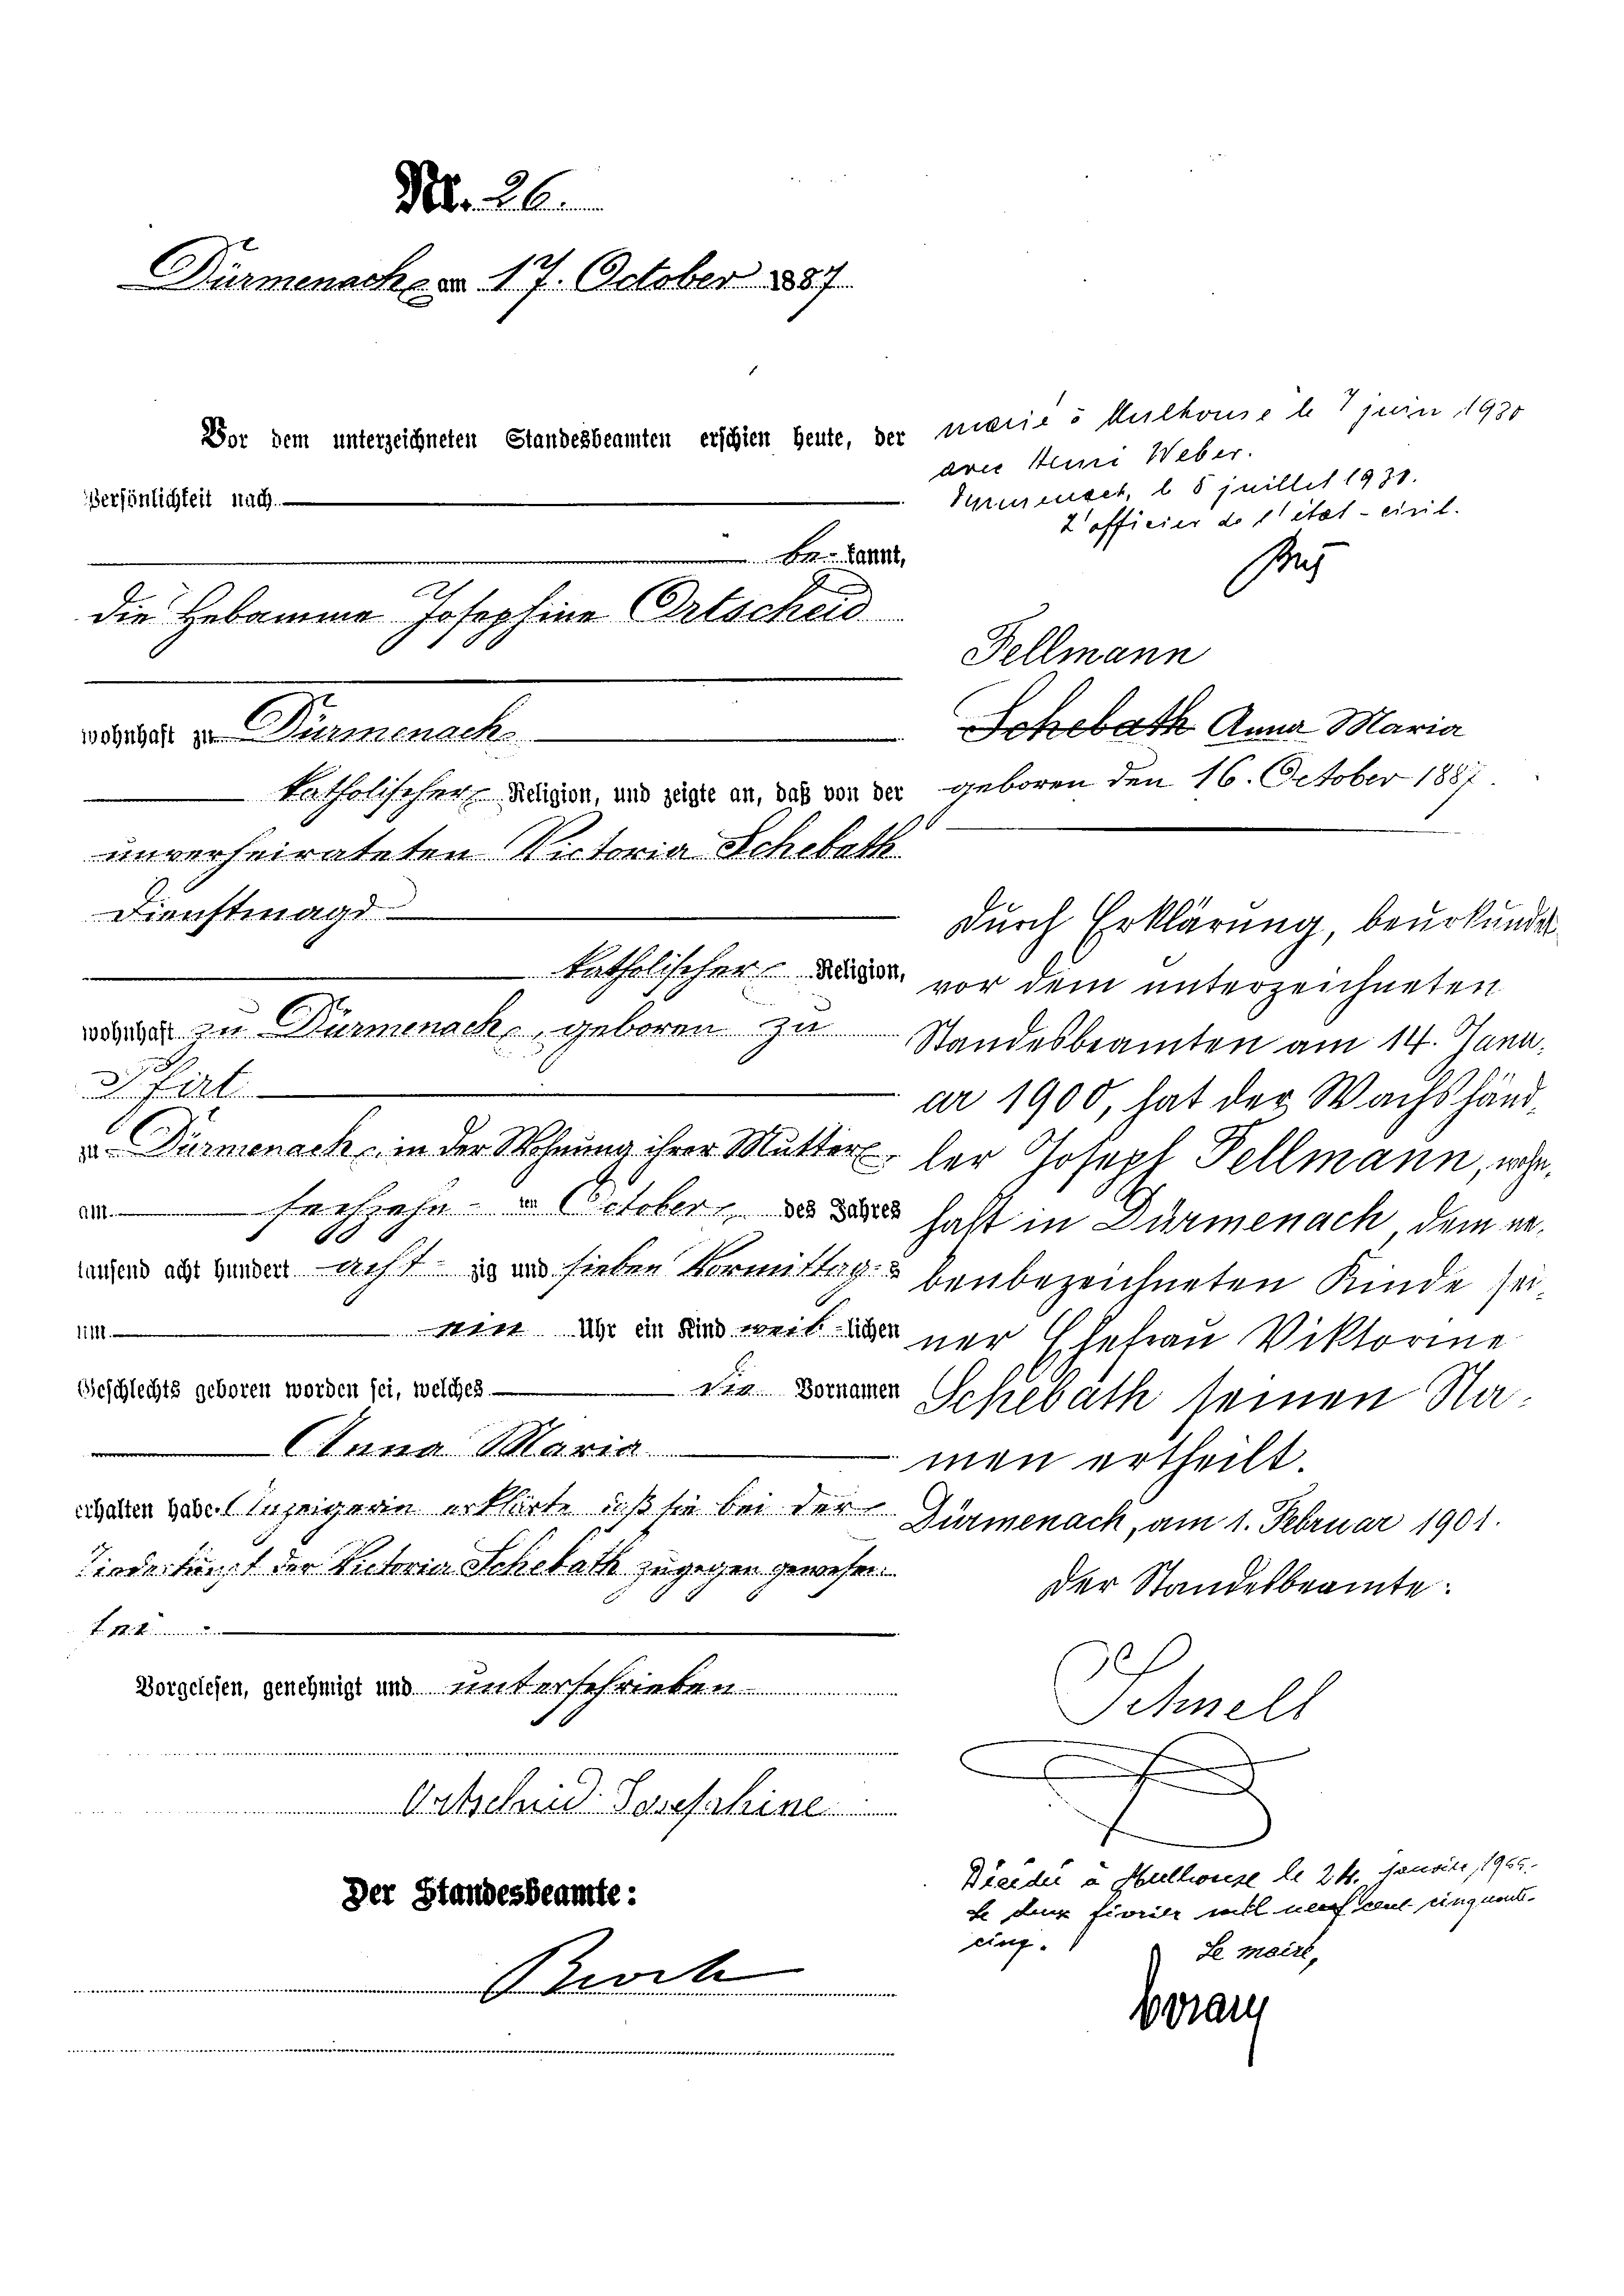 Nr. 26.
Dürmenach am 17. October 1887
Vor dem unterzeichneten Standesbeamten erschien heute, der
Persönlichkeit nach
be- kannt,
die Hebamme Josephine Ortscheid
wohnhaft zu Dürmenach
katholischer Religion, und zeigte an, daß von der
unverheirateten Victoria Schebath
Dienstmagd
katholischer Religion,
wohnhaft zu Dürmenach, geboren zu
Pfirt
zu Dürmenach, in der Wohnung ihrer Mutter,
am sechzehn ten October des Jahres
tausend acht hundert acht zig und sieben Vormittag s
um ein Uhr ein Kind weib -lichen
Geschlechts geboren worden sei, welches die Vornamen
Anna Maria
erhalten habe. Anzeigerin erklärte daß sie bei der
Niederkunft der Victoria Schebath zugegen gewesen
Vorgelesen, genehmigt und unterschrieben
Ortscheid Josephine
Der Standesbeamte:
marié à Mulhouse le 7 juin 1930
avec Weber.
juillet
L'officier de l'état-civil.
Fellmann
Schebath Anna Maria
geboren den 16. October 1887.
Durch Erklärung, beurkundet
vor dem unterzeichneten
Standesbeamten am 14. Janu-
ar 1900, hat der Wachshänd-
ler Joseph Fellmann, wohn-
haft in Dürmenach, dem ne-
benbezeichneten Kinde sei-
ner Ehefrau Viktorine
Schebath seinen Na-
men ertheilt.
Dürmenach, am 1. Februar 1901.
Der Standesbeamte:
Schnell
Décédée à Mulhouse le 24. janvier 1955.
Le deux février mil neuf cent cinquante-
cinq.
Le maire,